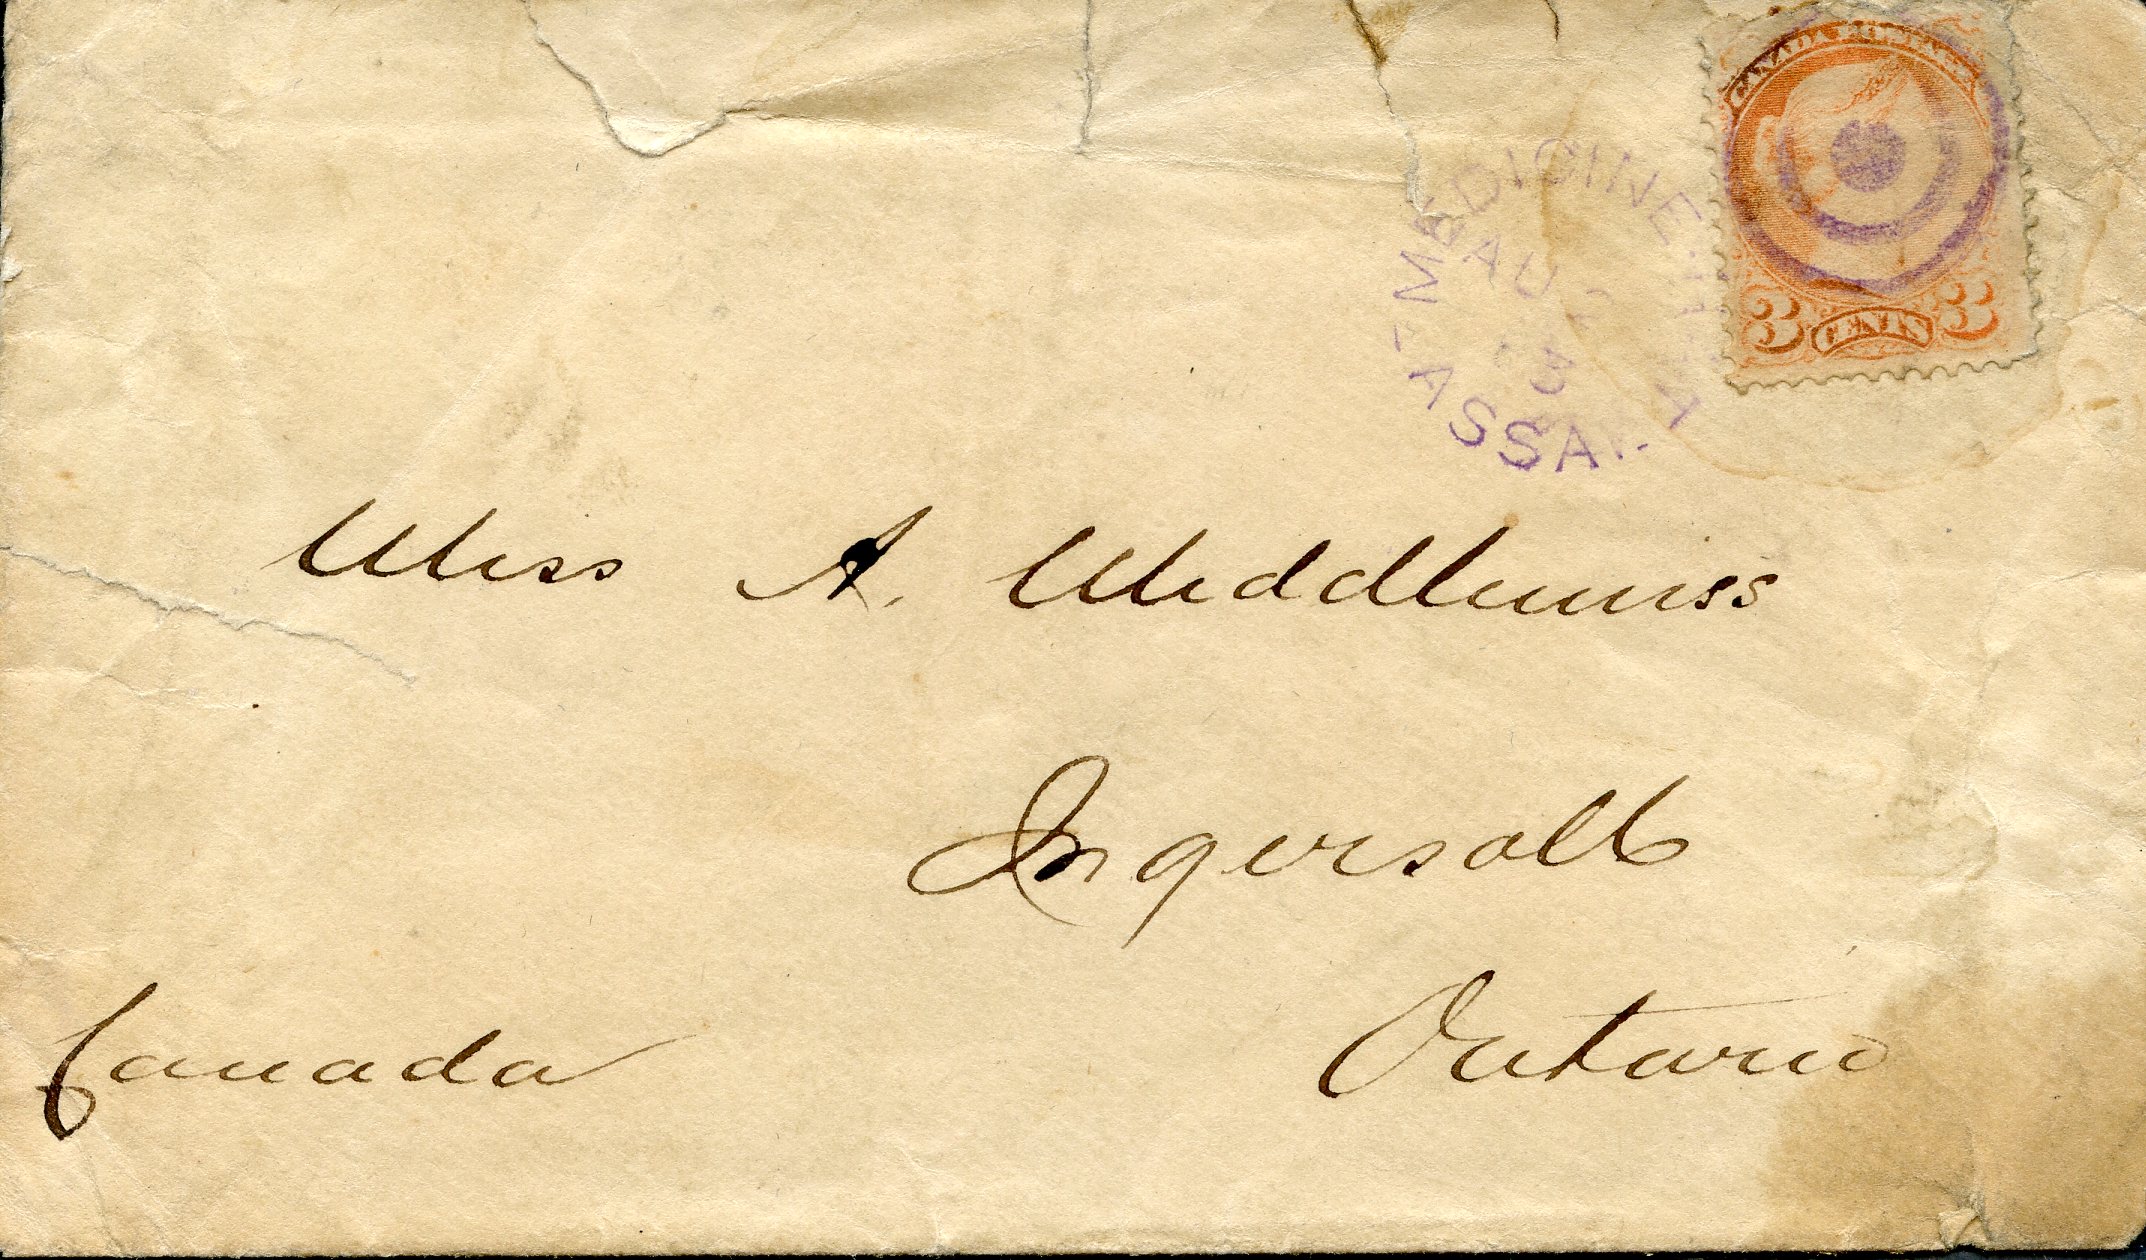 CANADA POSTAGE
3 CENTS 3
MEDICINE HAT
AU
3
ASSA.
Miss A. Middlemiss
Ingersoll
Ontario
Canada